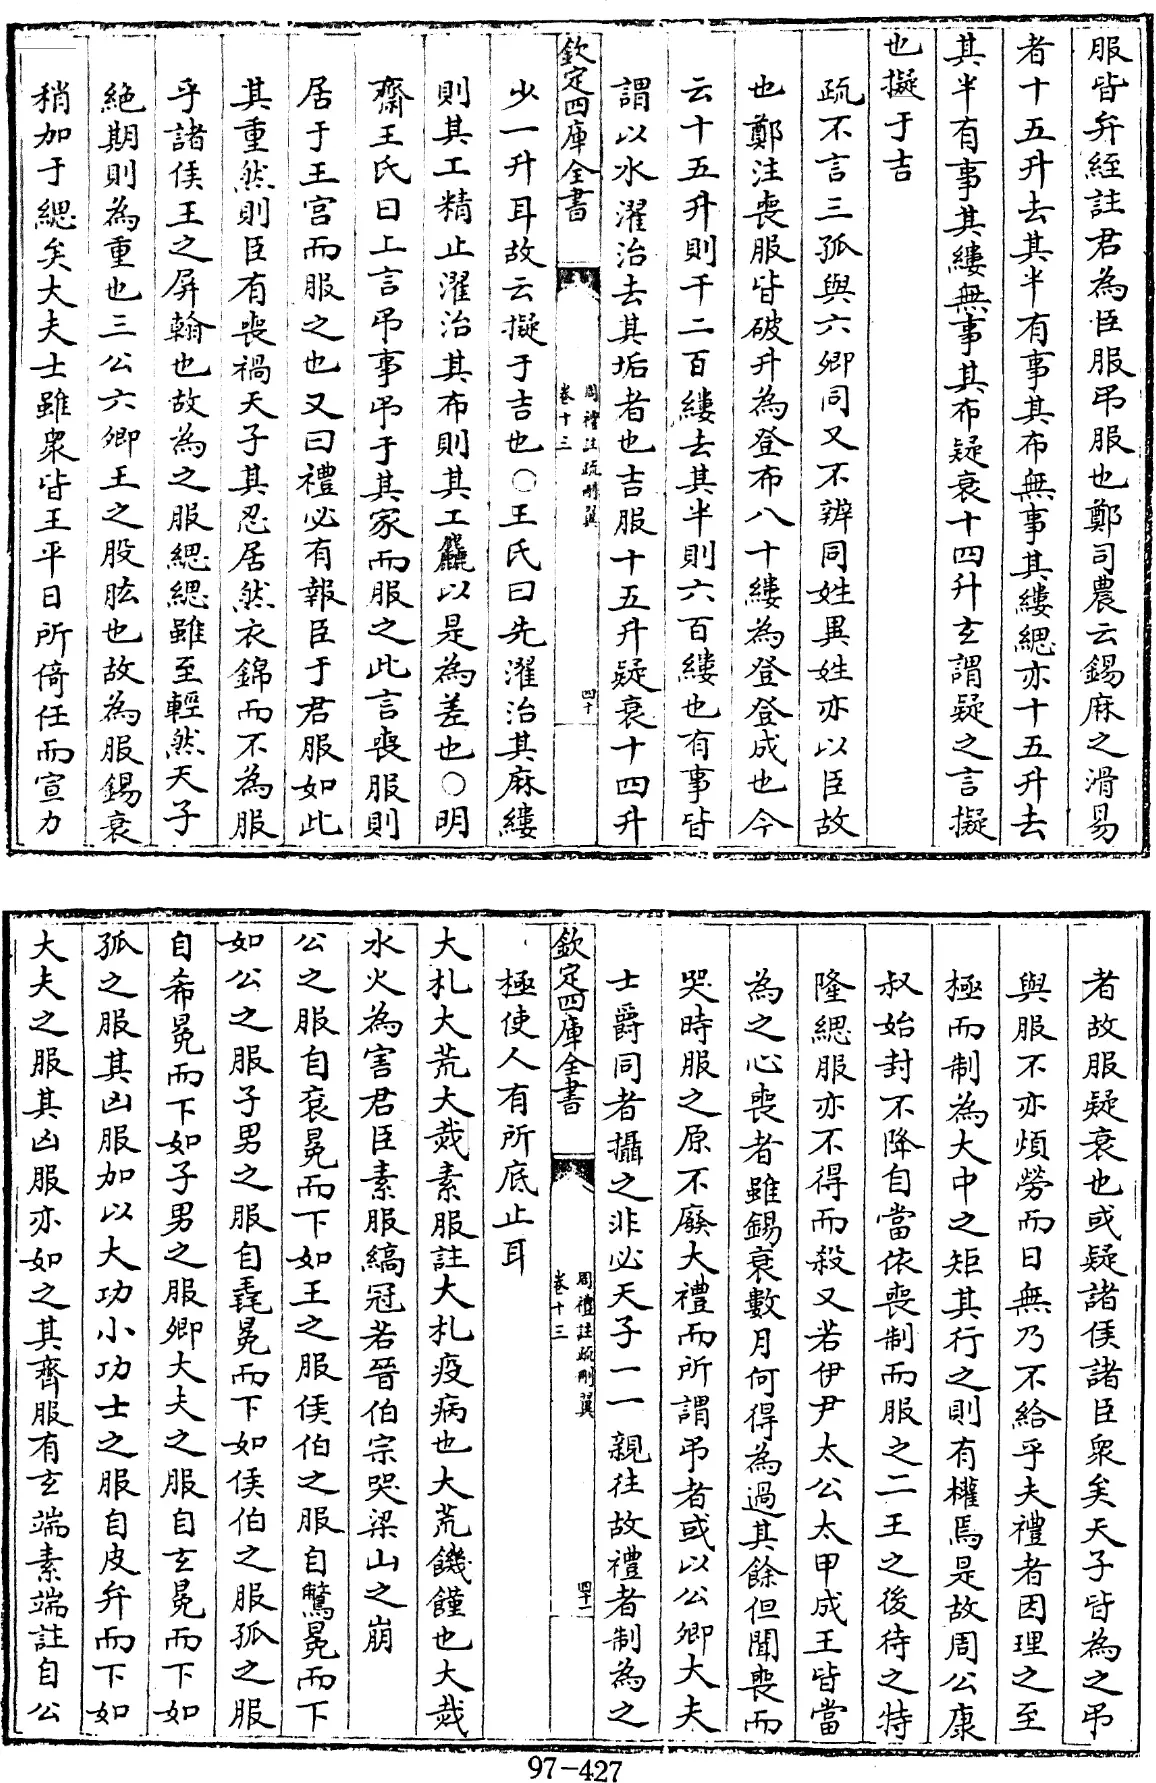 服皆弁絰註君為臣服弔服也鄭司農云錫麻之滑易
者十五升去其半有事其布無事其縷緦亦十五升去
其半有事其縷無事其布疑衰十四升玄謂疑之言擬
也擬于吉
疏不言三孤與六卿同又不辨同姓異姓亦以臣故
也鄭注喪服皆破升為登布八十縷為登登成也今
云十五升則千二百縷去其半則六百縷也有事皆
謂以水濯治去其垢者也吉服十五升疑衰十四升
欽定四庫全書
周禮註疏刪翼
卷十三
四十
少一升耳故云擬于吉也○王氏曰先濯治其麻縷
則其工精止濯治其布則其工麤以是為差也○明
齋王氏曰上言弔事弔于其家而服之此言喪服則
居于王宫而服之也又曰禮必有報臣于君服如此
其重然則臣有喪禍天子其忍居然衣錦而不為服
乎諸侯王之屏翰也故為之服緦緦雖至輕然天子
絶期則為重也三公六卿王之股肱也故為服錫衰
稍加于緦矣大夫士雖衆皆王平日所倚任而宣力
者故服疑衰也或疑諸侯諸臣衆矣天子皆為之弔
與服不亦煩勞而日無乃不給乎夫禮者因理之至
極而制為大中之矩其行之則有權焉是故周公康
叔始封不降自當依喪制而服之二王之後待之特
隆緦服亦不得而殺又若伊尹太公太甲成王皆當
為之心喪者雖錫衰數月何得為過其餘但聞喪而
哭時服之原不廢大禮而所謂弔者或以公卿大夫
士爵同者攝之非必天子一一親往故禮者制為之
欽定四庫全書
周禮註疏刪翼
卷十三
四十一
極使人有所底止耳
大札大荒大烖素服註大札疫病也大荒饑饉也大烖
水火為害君臣素服縞冠若晉伯宗哭梁山之崩
公之服自衮冕而下如王之服侯伯之服自鷩冕而下
如公之服子男之服自毳冕而下如侯伯之服孤之服
自希冕而下如子男之服卿大夫之服自玄冕而下如
孤之服其凶服加以大功小功士之服自皮弁而下如
大夫之服其凶服亦如之其齊服有玄端素端註自公
97-427